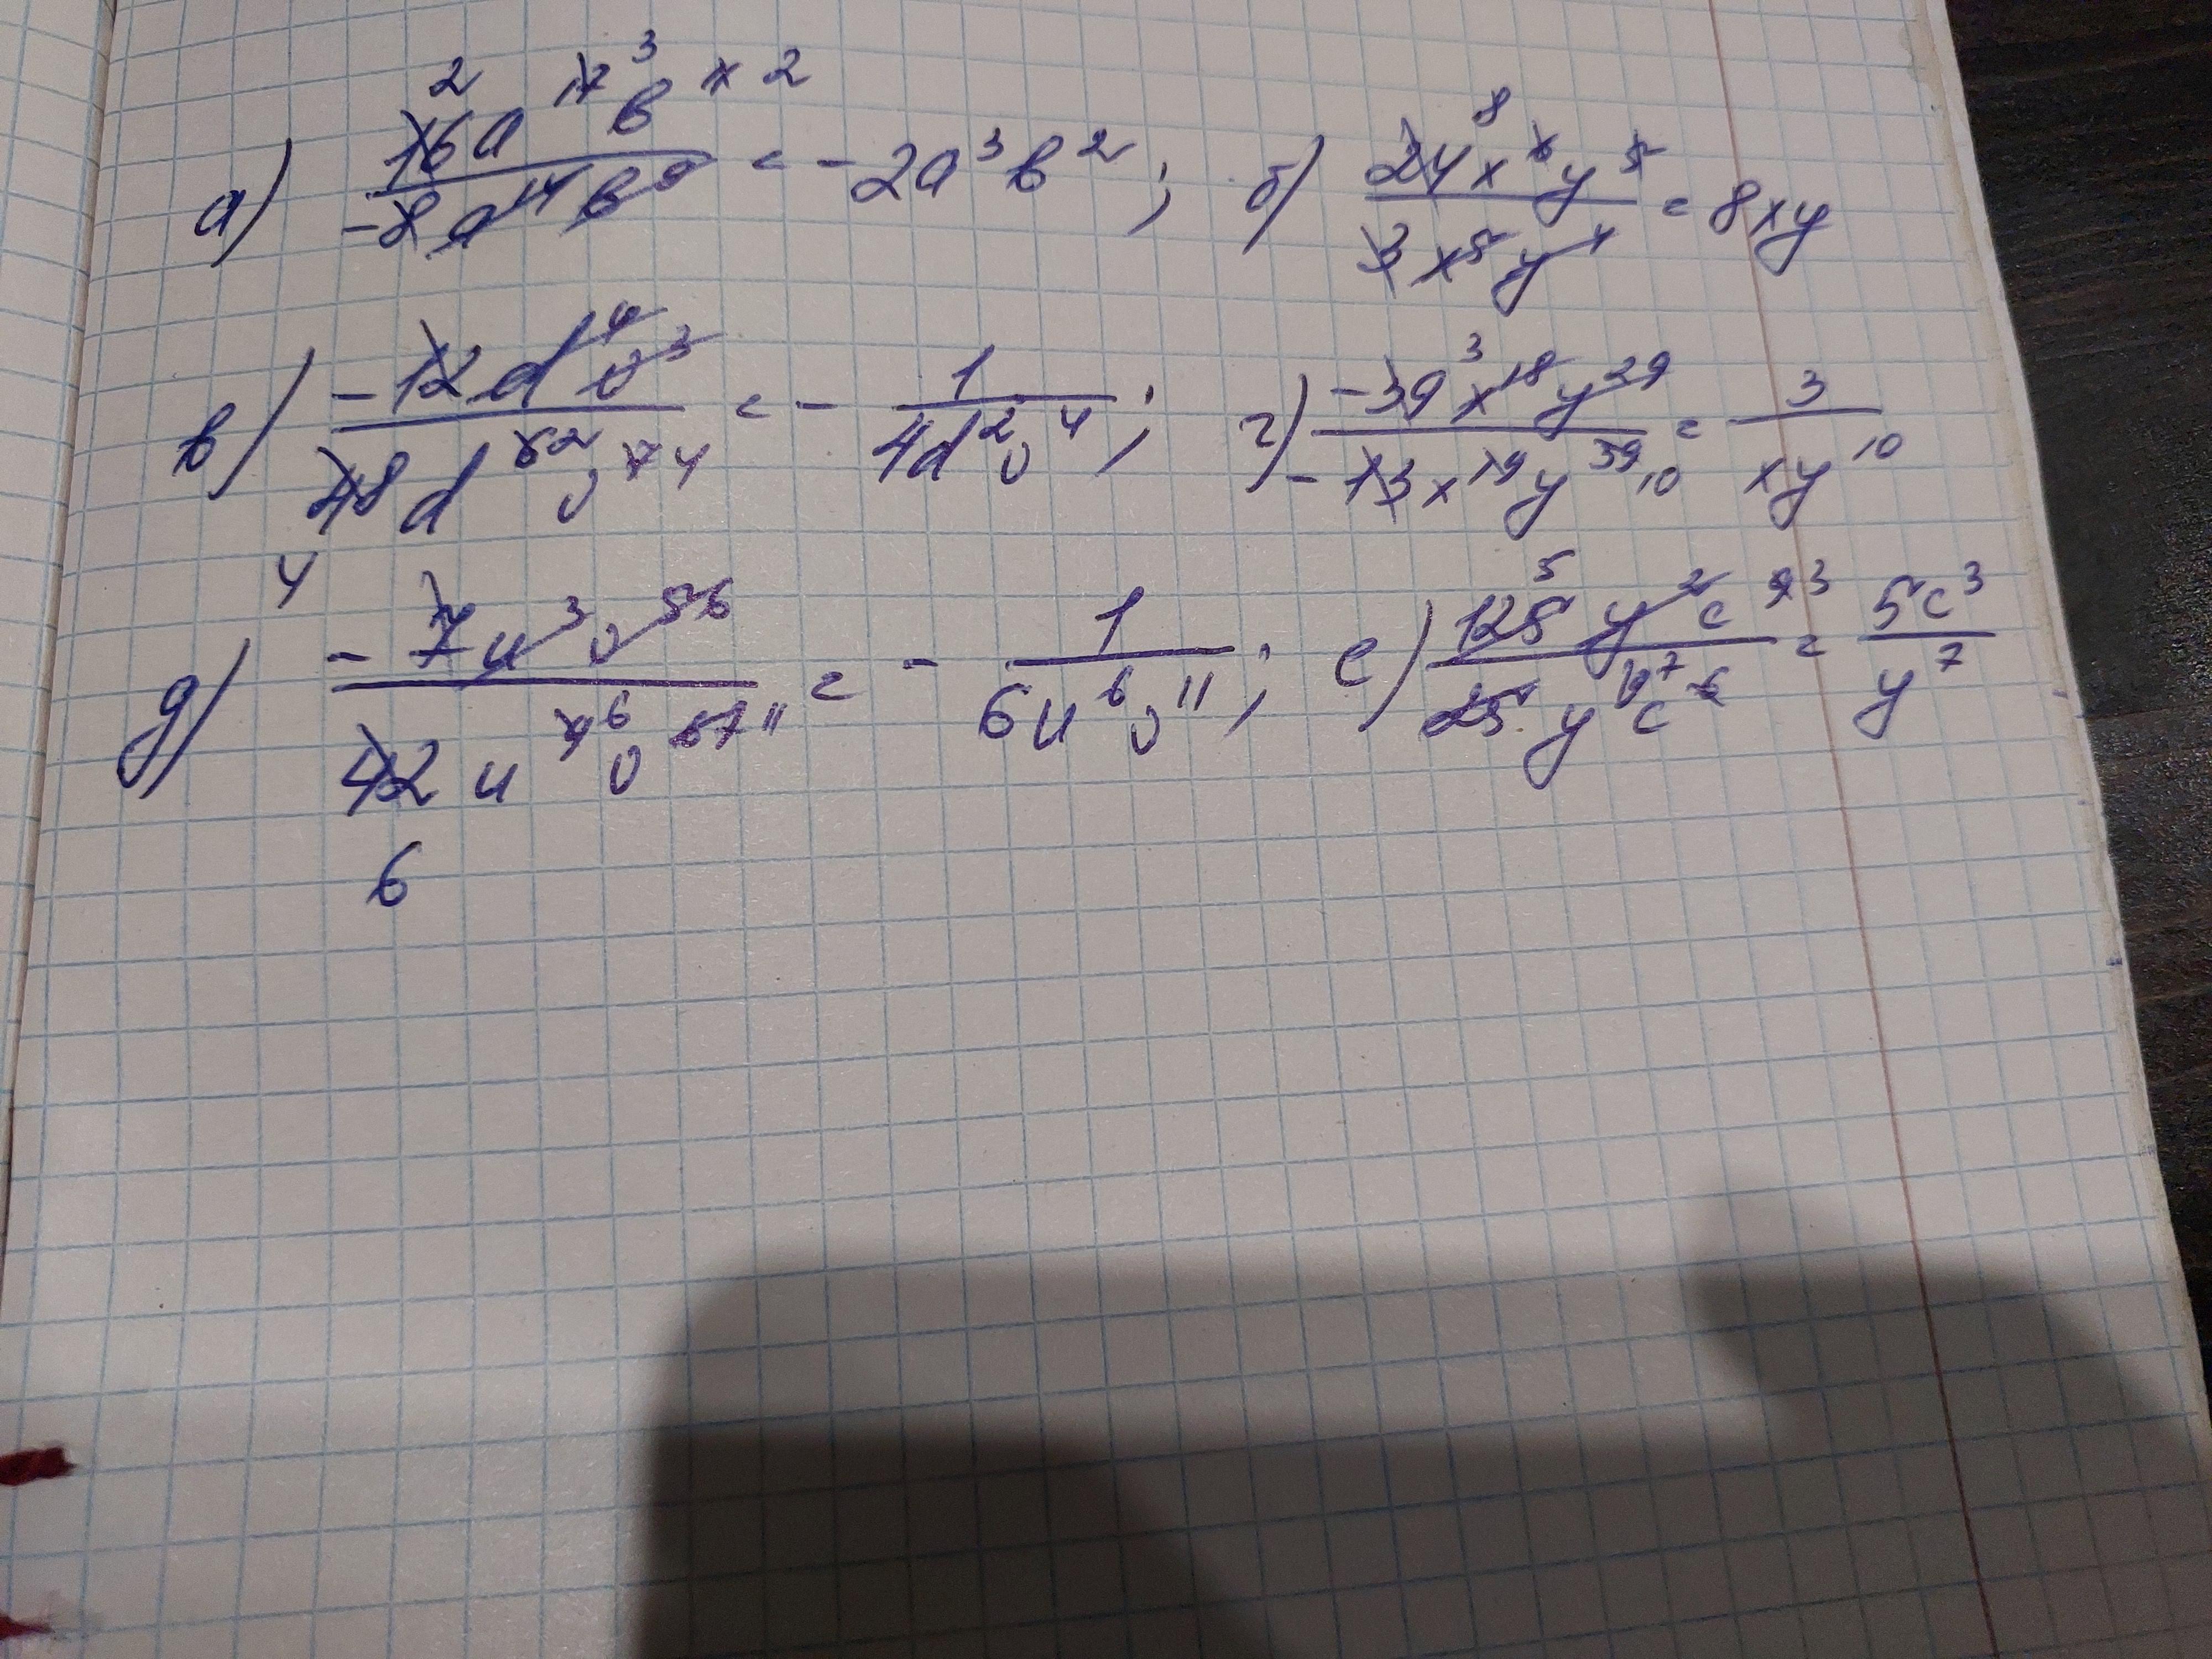 а) 16a¹⁷b¹¹ / -8a¹⁴b⁹ = -2a³b²; б) 24x⁶y⁵ / 3x⁵y⁴ = 8xy
в) -12d⁴v³ / 48d⁶v⁷ = - 1 / 4d²v⁴; г) -39x¹⁸y²⁹ / -13x¹⁹y³⁹ = 3 / xy¹⁰
д) -7u³v⁵⁶ / 42u⁹v⁶⁷ = - 1 / 6u⁶v¹¹; е) 125y²c⁹ / 25y⁹c⁶ = 5c³ / y⁷